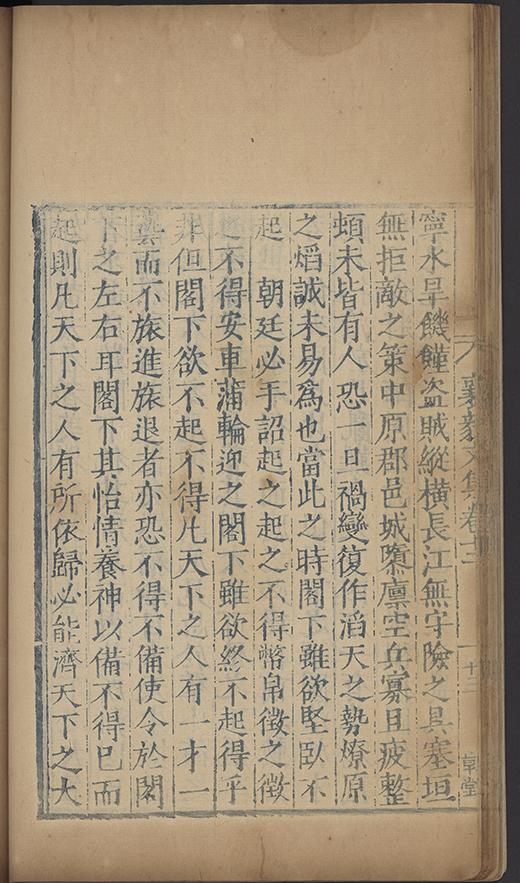 寧水旱饑饉盜賊縱橫長江無守險之具塞垣
無拒敵之策中原郡邑城隳廩空兵寡且疲整
頓未皆有人恐一旦禍變復作滔天之勢燎原
之熖誠未易爲也當此之時閣下雖欲堅臥不
起　朝廷必手詔起之起之不得幣帛徵之徵
不得安車蒲輪迎之閣下雖欲終不起得乎
非但閣下欲不起不得凡天下之人有一才一
藝而不旅進旅退者亦恐不得不備使令於閣
下之左右耳閣下其怡情養神以備不得已而
起則凡天下之人有所依歸必能濟天下之大
襄毅文集卷十二
十三